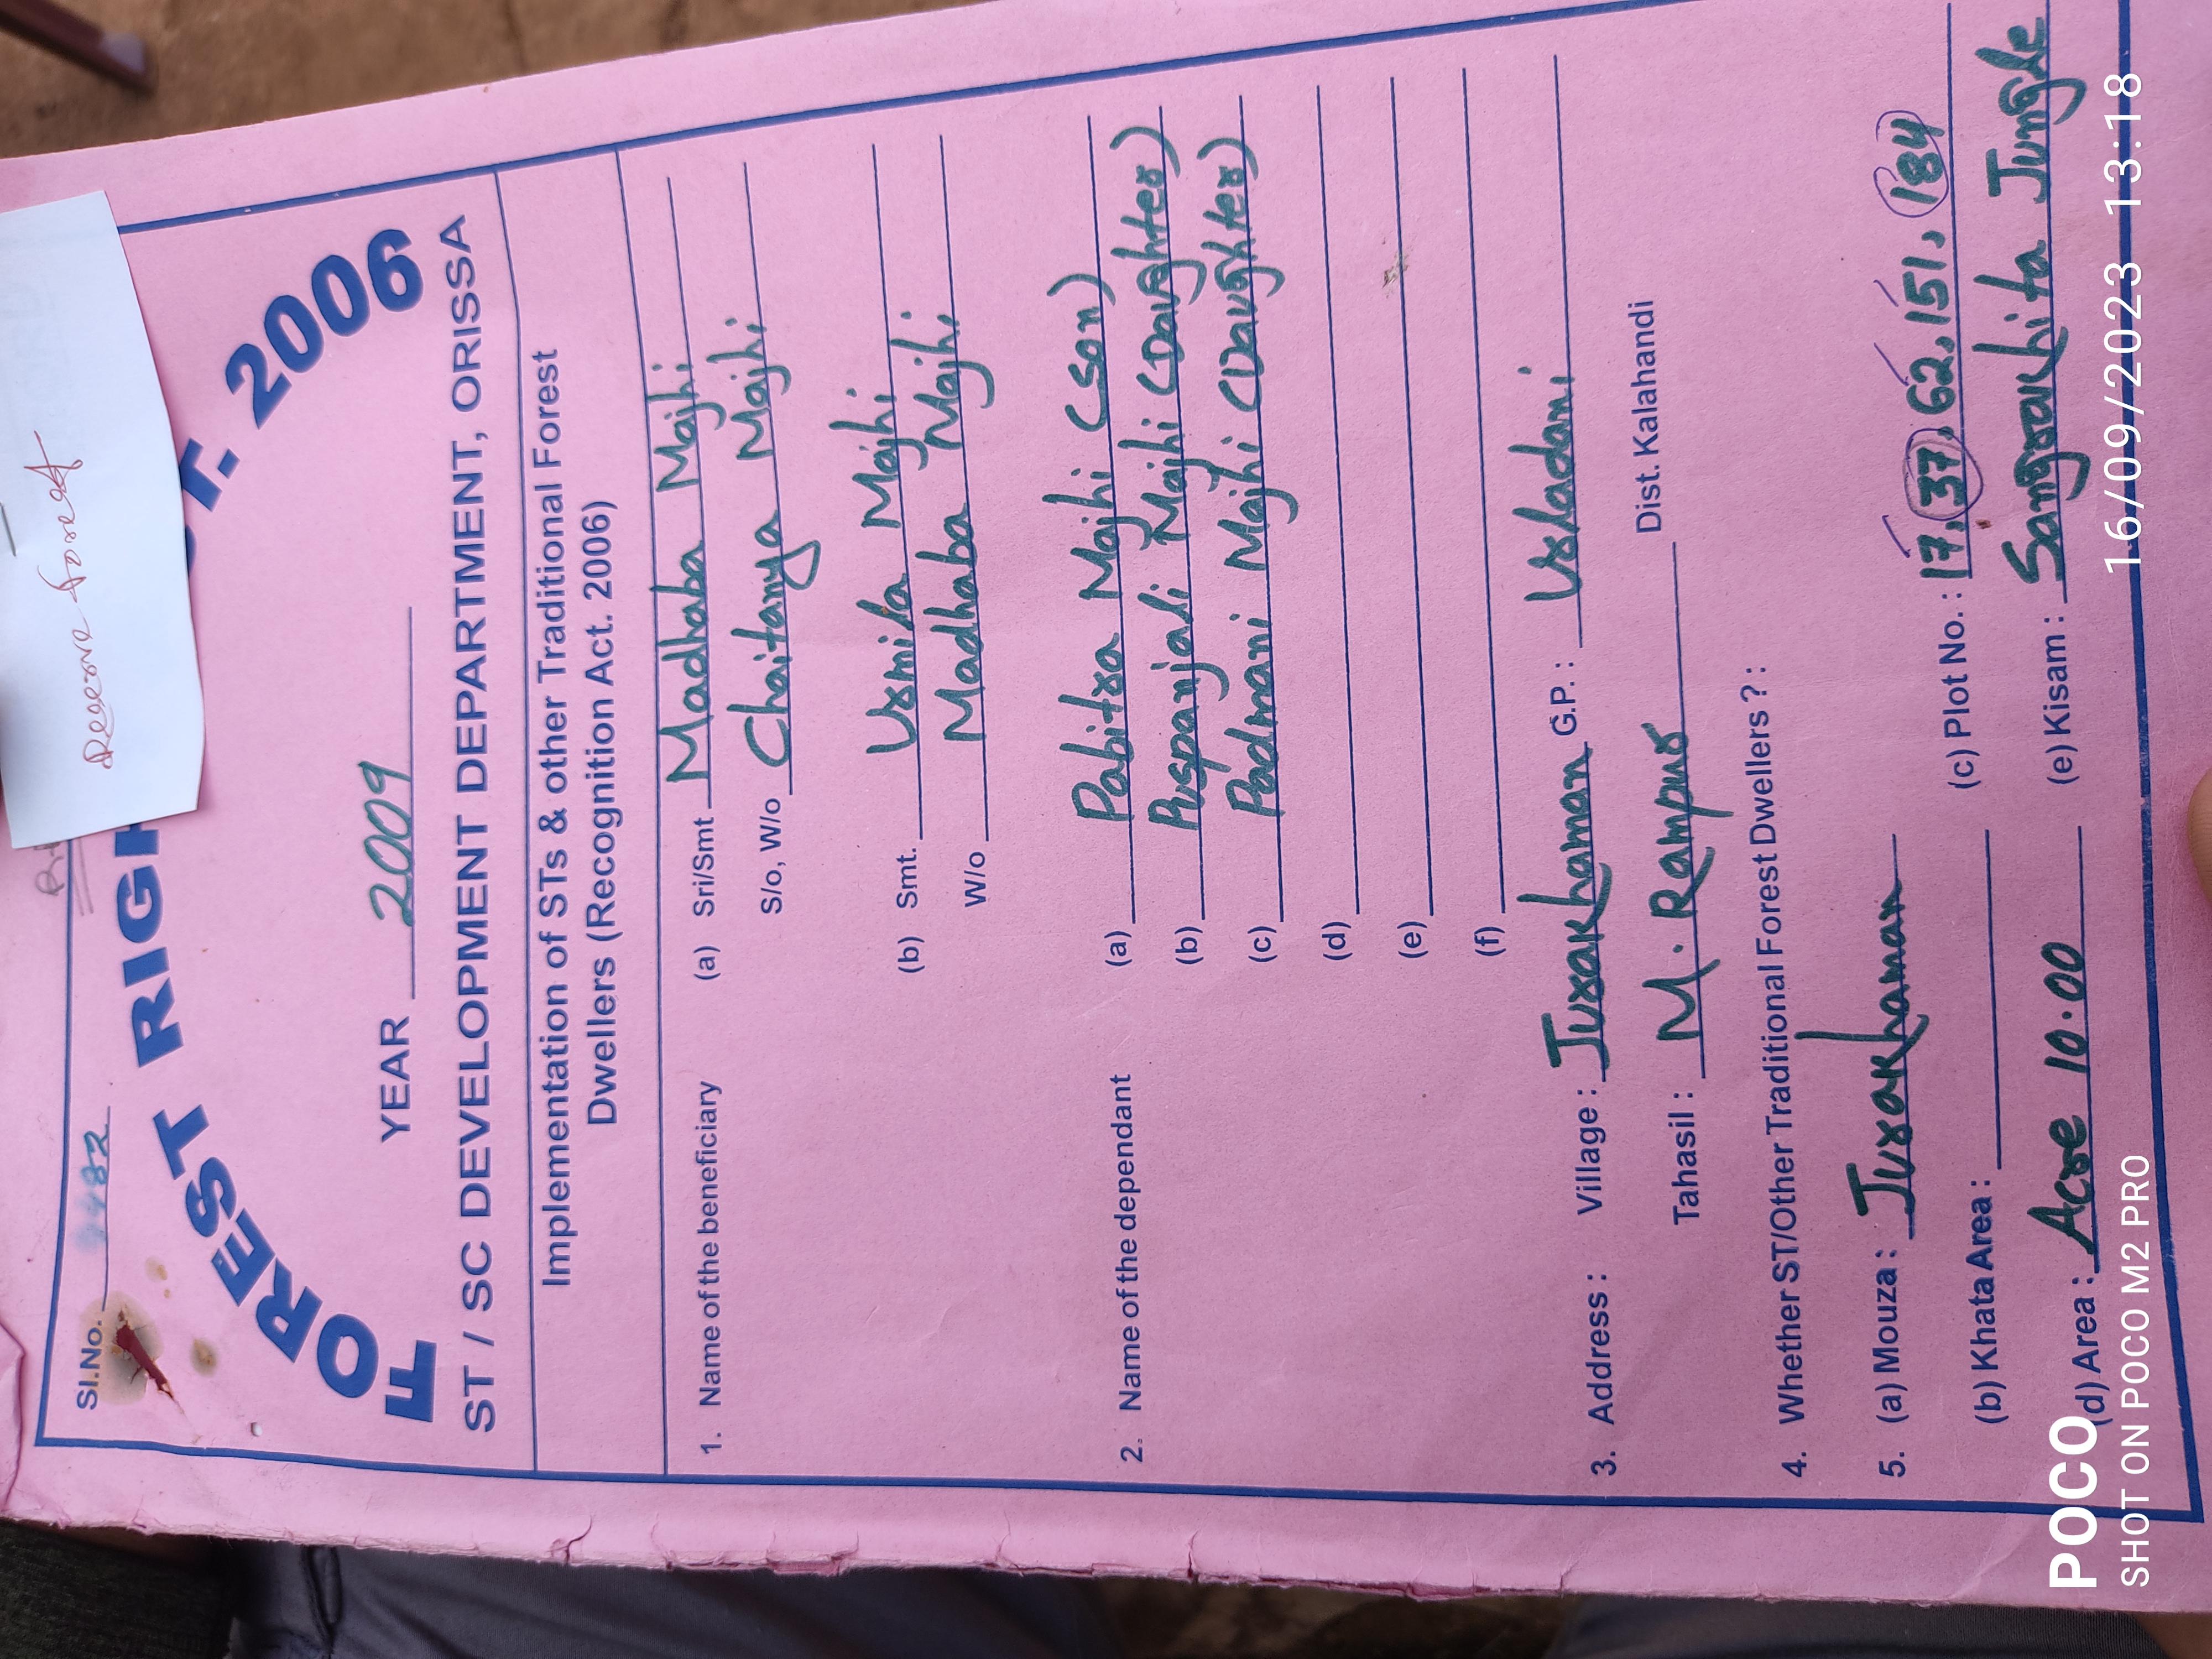 Reserve forest
Sl.No.
FOREST RIGH T. 2006
YEAR 2009
ST / SC DEVELOPMENT DEPARTMENT, ORISSA
Implementation of STs & other Traditional Forest
Dwellers (Recognition Act. 2006)
1. Name of the beneficiary (a) Sri/Smt Madhaba Majhi
S/o, W/o Chaitanya Majhi
(b) Smt. Urmila Majhi
W/o Madhaba Majhi
2. Name of the dependant (a) Pabitra Majhi (Son)
(b) Puspanjali Majhi (Daughter)
(c) Padmani Majhi (Daughter)
(d)
(e)
(f)
3. Address : Village : Jurakhaman G.P. : Urladani
Tahasil : M. Rampur Dist. Kalahandi
4. Whether ST/Other Traditional Forest Dwellers ? :
5. (a) Mouza : Jurakhaman (c) Plot No. : 17, 37, 62, 151, 184
(b) Khata Area : (e) Kisam : Sangrakhita Jungle
(d) Area : Acre 10.00
POCO
SHOT ON POCO M2 PRO
16/09/2023 13:18